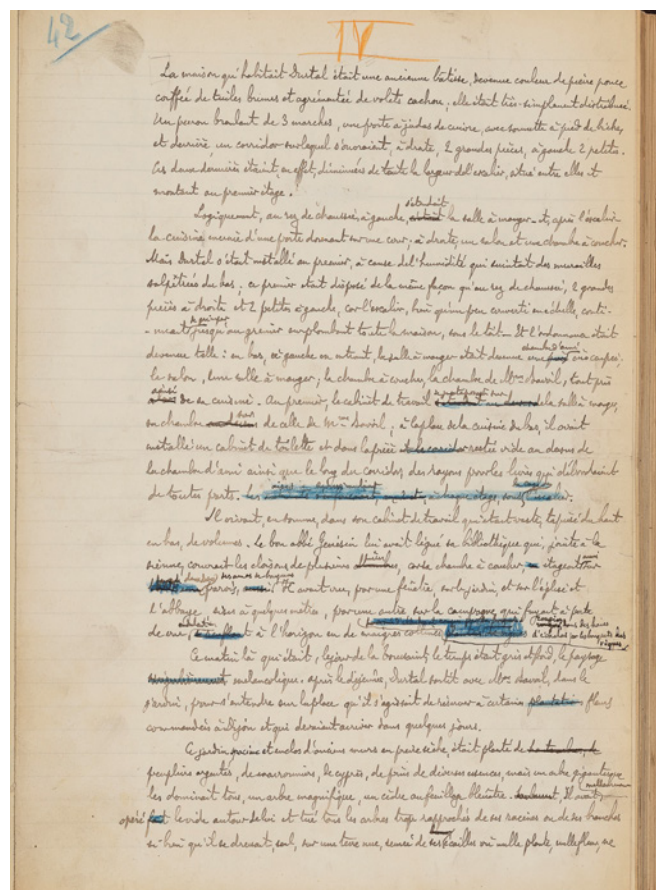 42
IV
La maison qu'habitait Durtal était une ancienne bâtisse, devenue couleur de pierre ponce
coiffée de tuiles brunes et agrémentée de volets cachou. elle était très simplement distribuée.
Un perron branlant de 3 marches, une porte à judas de cuivre, avec sonnette à pied de biche,
et derrière un corridor sur lequel s'ouvraient, à droite, 2 grandes pièces, à gauche 2 petites.
Ces deux dernières étaient, en effet, diminuées de toute la largeur de l'escalier, situé entre elles et
montant au premier étage.
s'étendait
Logiquement, au rez de chaussée, à gauche, la salle à manger et, après l'escalier
la cuisine, munie d'une porte donnant sur une cour; à droite, un salon et une chambre à coucher.
Mais Durtal s'était installé au premier, à cause de l'humidité qui suintait des murailles
salpêtrées du bas. ce premier était disposé de la même façon qu'au rez de chaussée, 2 grandes
pièces à droite et 2 petites à gauche, car l'escalier, bien qu'un peu converti en échelle, conti-
-nuait jusqu'au grenier surplombant toute la maison, sous le toit. Et l'ordonnance était
chambre d'ami
devenue telle: en bas, à gauche en entrant, la salle à manger était devenue une
le salon, une salle à manger; la chambre à coucher, la chambre de Mme Bavoil, tout près
de sa cuisine. Au premier, le cabinet de travail la salle à manger,
sur
sa chambre de celle de Mme Bavoil; à la place de la cuisine du bas, il avait
installé un cabinet de toilette et dans la pièce restée vide au dessus de
la chambre d'ami ainsi que le long du corridor, des rayons pour les livres qui débordaient
de toutes parts.
Il vivait, en somme, dans son cabinet de travail qui était vaste, tapissé du haut
en bas, de volumes. Le bon abbé Gévresin lui avait légué sa bibliothèque qui, jointe à la
sienne, couvrait les cloisons de plusieurs car sa chambre à coucher,
parois, Il avait vue, par une fenêtre, sur le jardin, et sur l'église et
l'abbaye sises à quelques mètres, par une autre sur la campagne qui fuyait à perte
de vue, à l'horizon en de maigres
Ce matin là qui était, le jour de la Toussaint, le temps était gris et froid, le paysage
mélancolique. après le déjeuner, Durtal sortit avec Mme Bavoil, dans le
jardin, pour s'entendre sur la place qu'il s'agissait de réserver à certaines fleurs
commandées à Dijon et qui devaient arriver dans quelques jours.
Ce jardin enclos d'anciens murs en pierre sèche, était planté de
peupliers argentés, de marronniers, de cyprès, de pins de diverses essences, mais un arbre gigantesque
les dominait tous, un arbre magnifique, un cèdre au feuillage bleuâtre. Il avait,
opéré le vide autour de lui et tué tous les arbres trop rapprochés de ses racines ou de ses branches
si bien qu'il se dressait, seul, sur une terre nue, semée de ses écailles où nulle plante, nulle fleur, ne